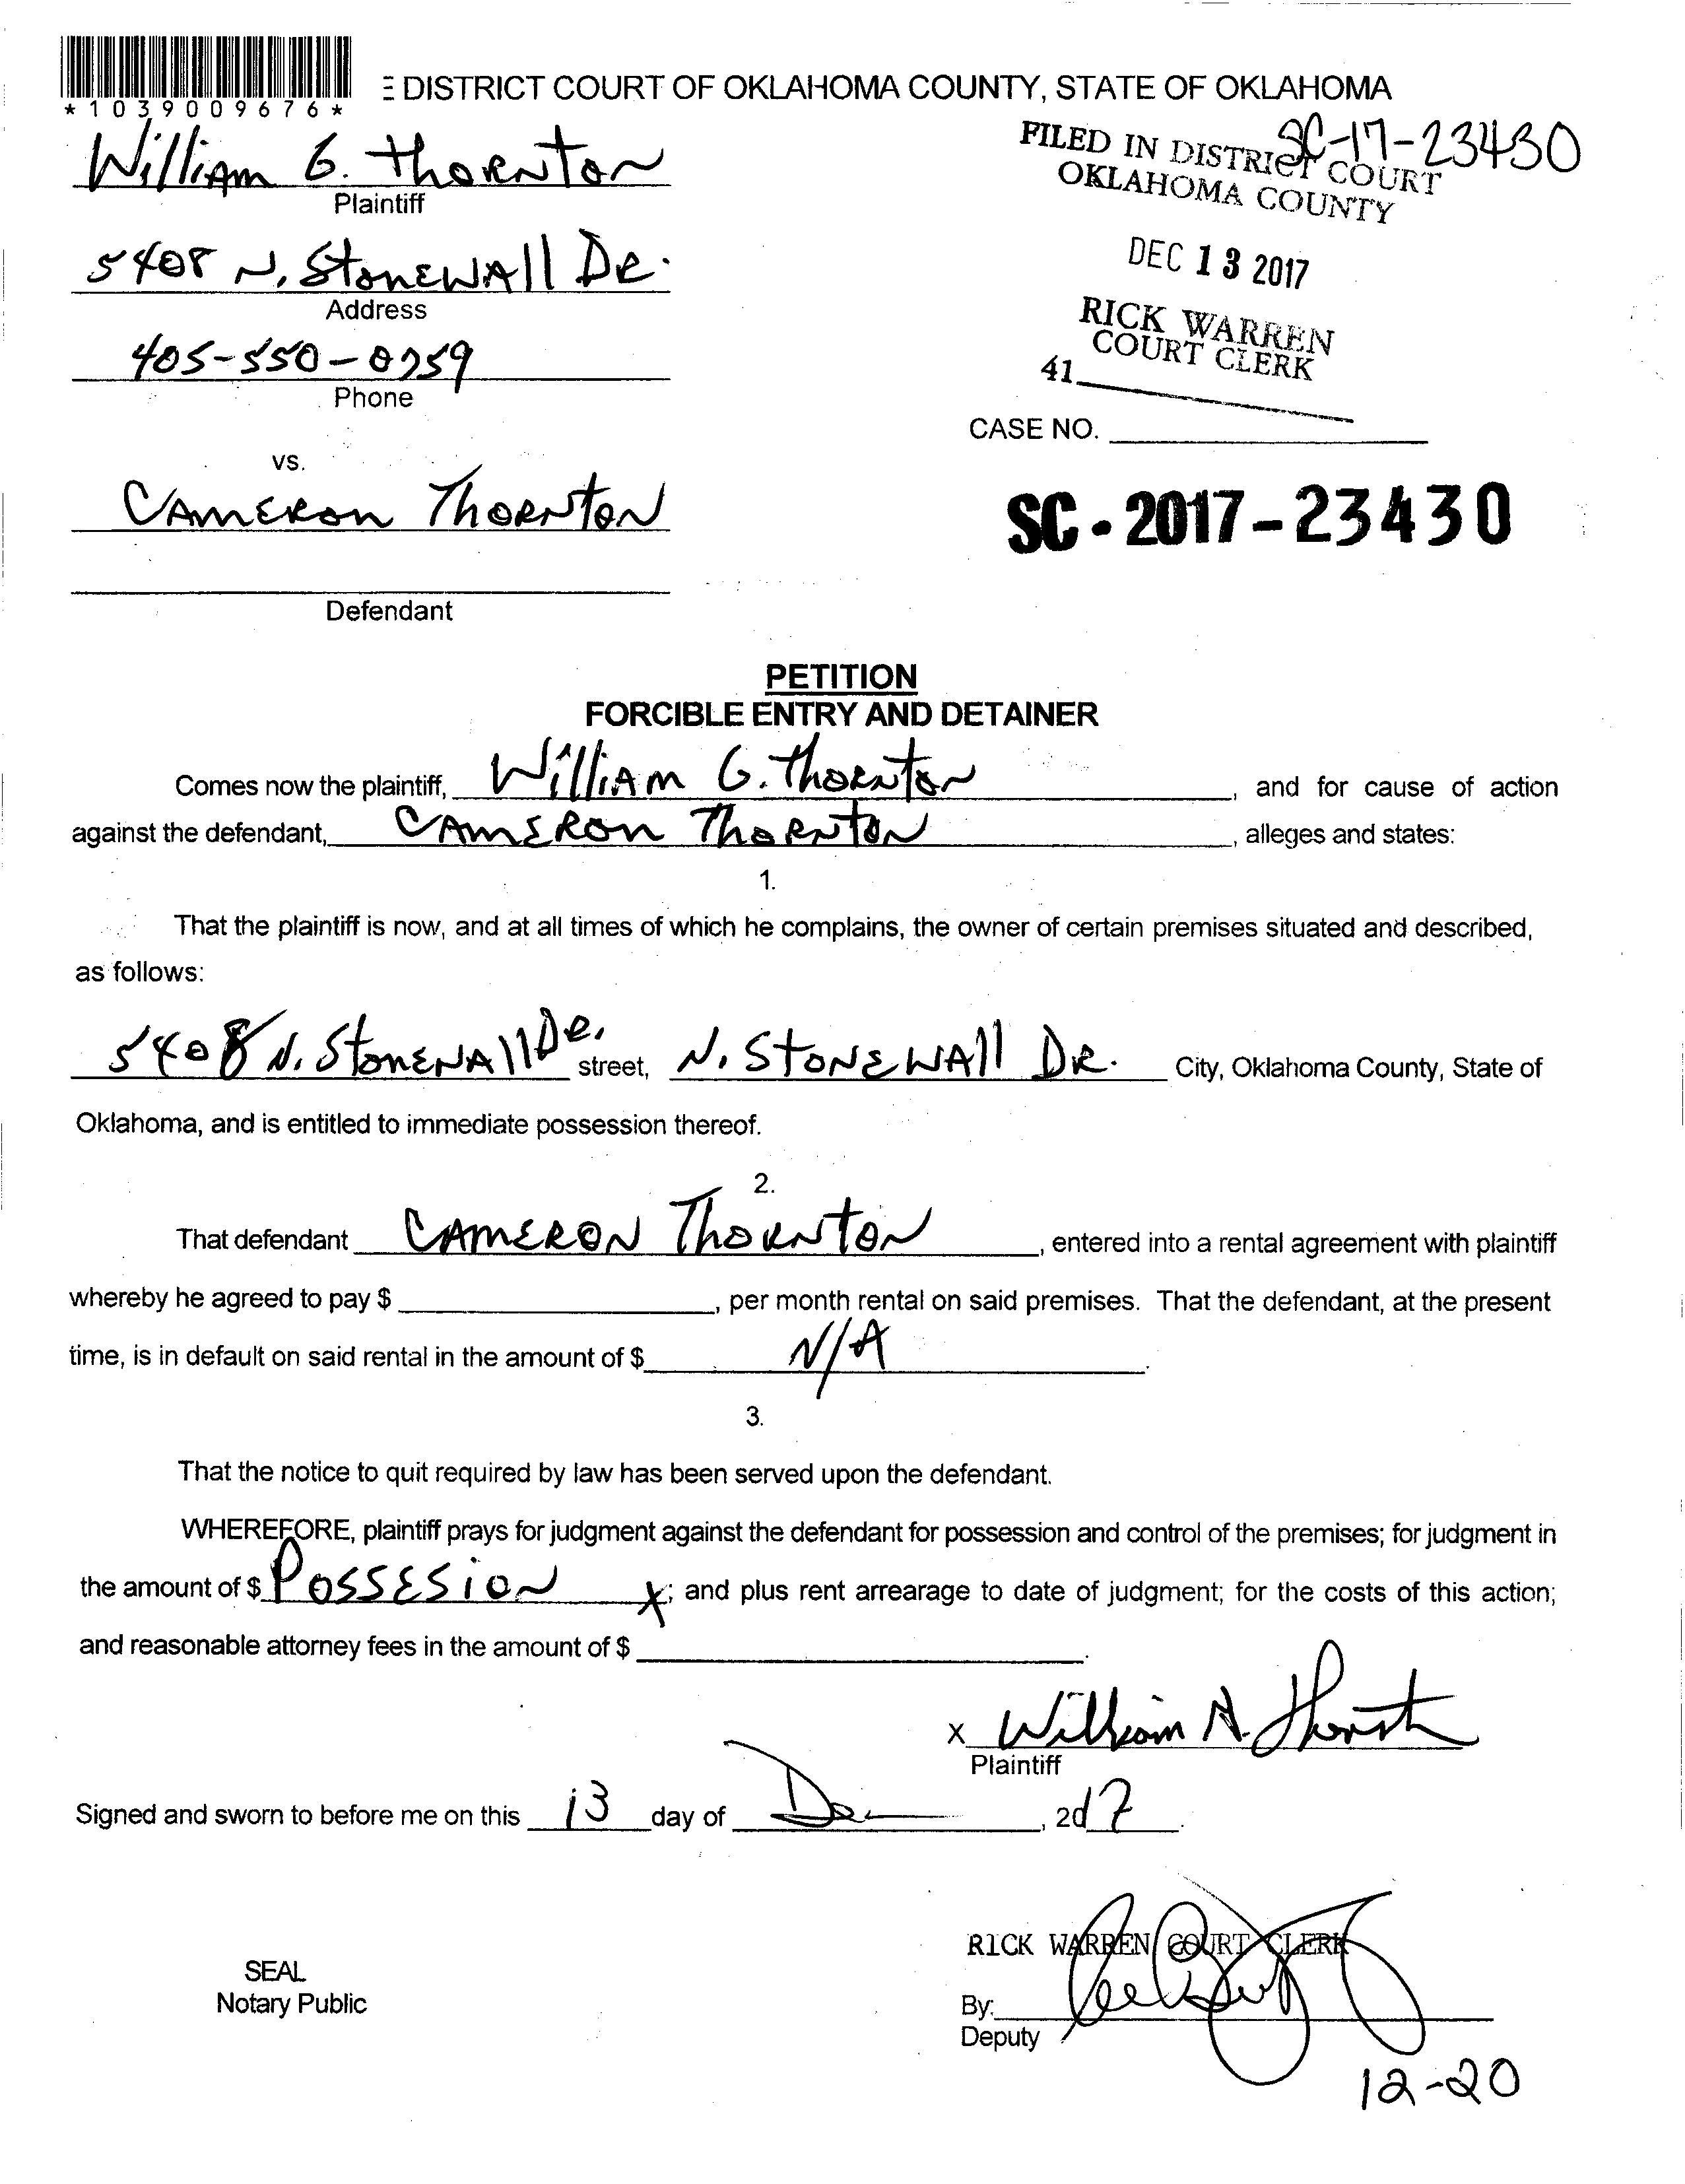 *1039009676*
E DISTRICT COURT OF OKLAHOMA COUNTY, STATE OF OKLAHOMA
SC-17-23430
FILED IN DISTRICT COURT
OKLAHOMA COUNTY
William G. Thornton
Plaintiff
DEC 13 2017
5408 N. Stonewall Dr.
Address
RICK WARREN
COURT CLERK
41
405-550-0759
Phone
CASE NO.
vs.
Cameron Thornton
SC-2017-23430
Defendant
PETITION
FORCIBLE ENTRY AND DETAINER
Comes now the plaintiff, William G. Thornton, and for cause of action
against the defendant, Cameron Thornton, alleges and states:
1.
That the plaintiff is now, and at all times of which he complains, the owner of certain premises situated and described,
as follows:
5408 N. Stonewall Dr. street, N. Stonewall Dr. City, Oklahoma County, State of
Oklahoma, and is entitled to immediate possession thereof.
2.
That defendant Cameron Thornton, entered into a rental agreement with plaintiff
whereby he agreed to pay $, per month rental on said premises. That the defendant, at the present
time, is in default on said rental in the amount of $ N/A.
3.
That the notice to quit required by law has been served upon the defendant.
WHEREFORE, plaintiff prays for judgment against the defendant for possession and control of the premises; for judgment in
the amount of $ Possesion x; and plus rent arrearage to date of judgment; for the costs of this action;
and reasonable attorney fees in the amount of $.
X William
Plaintiff
Signed and sworn to before me on this 13 day of Dec, 2017.
RICK WARREN COURT CLERK
SEAL
Notary Public
By:
Deputy
12-20